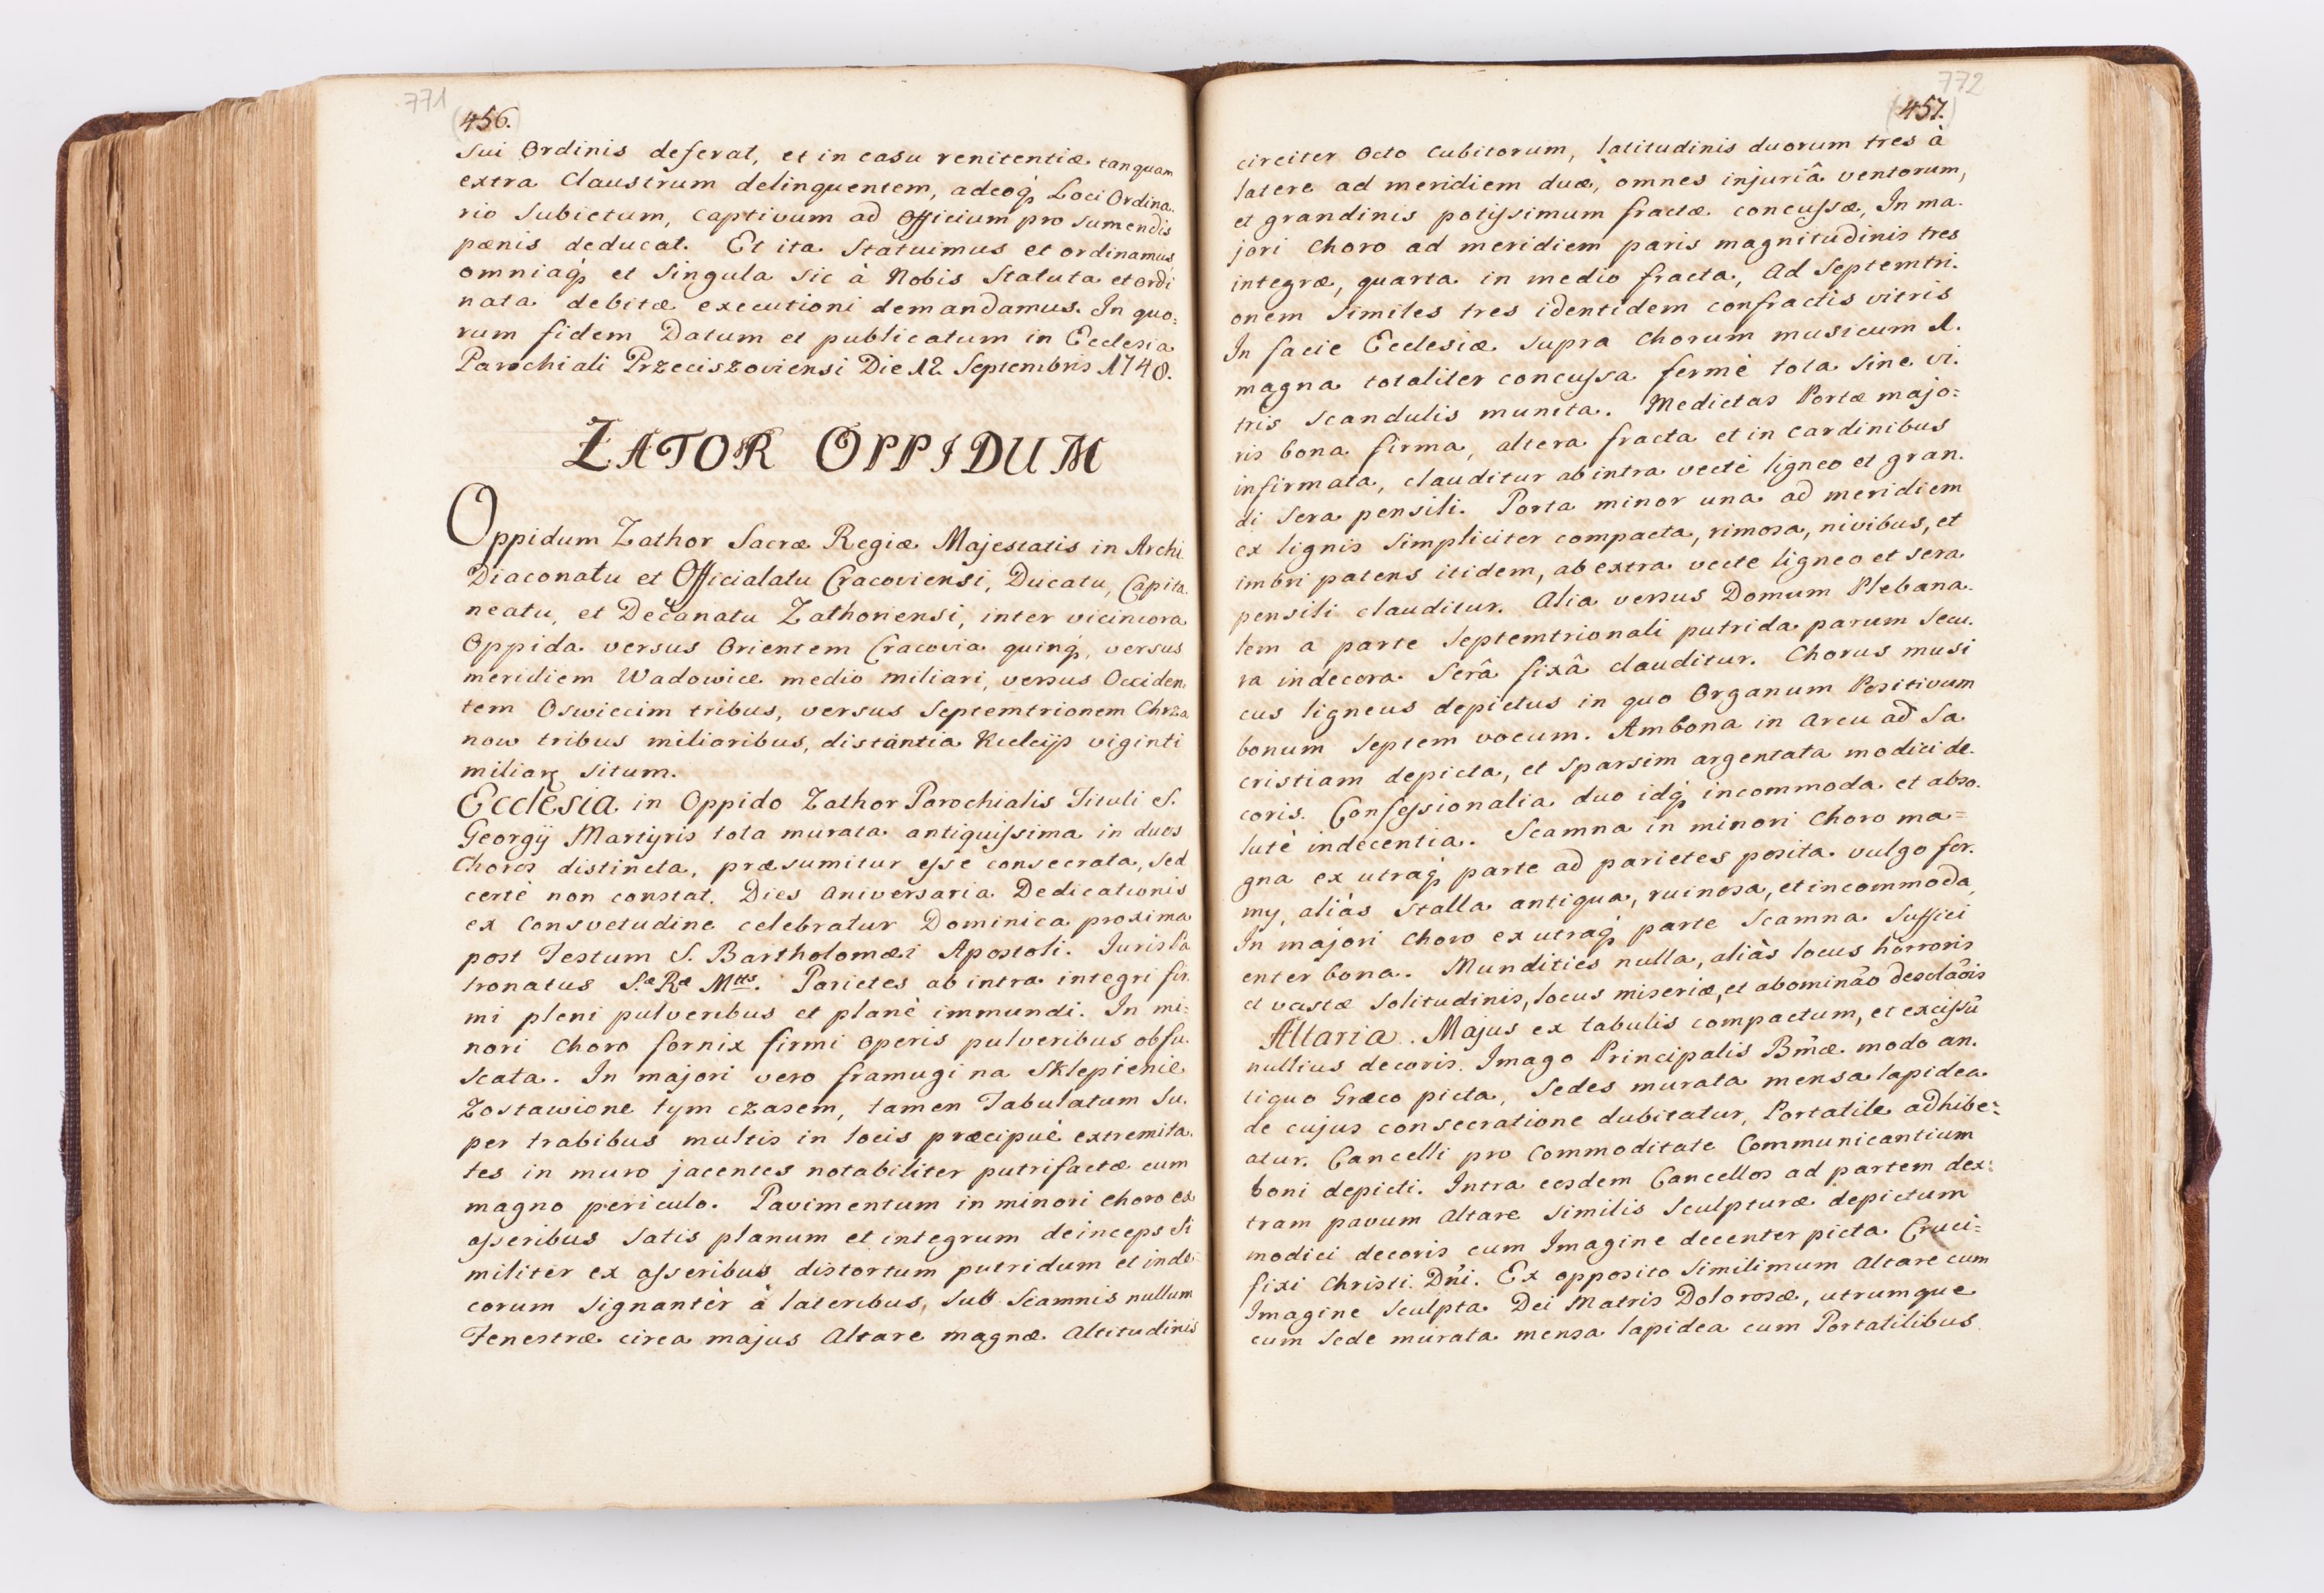 771
456.
Sui Ordinis deferat, et in casu renitentiæ tanquam
extra Claustrum delinquentem, adeoq; Loci Ordina-
rio Subietum, captivum ad Officium pro sumendis
pænis deducat. Et ita Statuimus et ordinamus
omniaq; et Singula sic à Nobis Statuta et ordi
nata debitæ executioni demandamus. In quo=
rum fidem Datum et publicatum in Ecclesia
Parochiali Przeciszoviensi Die 12 Septembris 1748.
ZATOR OPPIDUM
Oppidum Zathor Sacræ Regiæ Majestatis in Archi
Diaconatu et Officialatu Cracoviensi, Ducatu, Capita-
neatu, et Decanatu Zathoriensi, inter viciniora
Oppida versus Orientem Cracovia quinq; versus
meridiem Wadowice medio miliari, versus Occiden-
tem Oswiecim tribus, versus Septemtrionem Chrza
now tribus miliaribus, distantia Kielcijs viginti
miliar situm.
Ecclesia in Oppido Zathor Parochialis Tituli S.
Georgij Martyris tota murata antiquissima in duos
Choros distincta, præsumitur esse consecrata, sed
certè non constat. Dies Aniversaria Dedicationis
ex Consvetudine celebratur Dominica proxima
post Festum S. Bartholomæi Apostoli. Juris Pa
tronatus S.æ Ræ Mttis. Parietes ab intra integri fir-
mi pleni pulveribus et planè immundi. In mi=
nori Choro fornix firmi Operis pulveribus obfu-
scata. In majori vero framugi na Sklepienie
Zostawione tym czasem, tamen Tabulatum Su-
per trabibus multis in locis præcipuè extremita-
tes in muro jacentes notabiliter putrifactæ cum
magno periculo. Pavimentum in minori choro ex
asseribus satis planum et integrum deinceps Si
militer ex asseribus distortum putridum et inde
corum Signantèr à lateribus, sub Scamnis nullum
Fenestræ circa majus Altare magnæ Altitudinis
772
457.
circiter Octo Cubitorum, latitudinis duorum tres à
latere ad meridiem duæ, omnes injuriâ ventorum,
et grandinis potissimum fractæ concussæ, In ma-
jori Choro ad meridiem paris magnitudinis tres
integræ, quarta in medio fracta, Ad Septemtri-
onem Similes tres identidem confractis vitris
In facie Ecclesiæ supra Chorum musicum 1.
magna totaliter concussa fermè tota sine vi-
tris scandulis munita. Medietas Portæ majo=
ris bona firma, altera fracta et in cardinibus
infirmata, clauditur ab intra vectè ligneo et gran-
di Sera pensili. Porta minor una ad meridiem
ex lignis Simpliciter compacta, rimosa, nivibus, et
imbri patens itidem, ab extra vecte ligneo et sera
pensili clauditur. Alia versus Domum Plebana-
lem a parte Septemtrionali putrida parum Secu-
ra indecora Serâ fixâ clauditur. Chorus musi
cus ligneus depictus in quo Organum Positivum
bonum Septem vocum. Ambona in arcu ad Sa
cristiam depicta, et sparsim argentata modici de-
coris. Confessionalia duo idq; incommoda et abso-
lutè indecentia. Scamna in minori Choro ma=
gna ex utraq; parte ad parietes posita vulgo for-
my, aliàs Stalla antiqua, ruinosa, et incommoda,
In majori Choro ex utraq; parte Scamna Suffici
enter bona. Mundities nulla, aliàs locus horroris
et vastæ Solitudinis, locus miseriæ, et abominão desolãois
Altaria. Majus ex tabulis compactum, et excissũ
nullius decoris. Imago Principalis Bm̃æ modo an-
tiquo Græco picta, Sedes murata mensa lapidea
de cujus consecratione dubitatur, Portatile adhibe=
atur. Cancelli pro Commoditate Communicantium
boni depicti. Intra eosdem Cancellos ad partem dex=
tram pavum Altare similis Sculpturæ depictum
modici decoris cum Imagine decenter picta Cruci=
fixi Christi. Dñi. Ex opposito Similimum Altare cum
Imagine Sculpta Dei Matris Dolorosæ, utrumque
cum Sede murata mensa lapidea cum Portatilibus